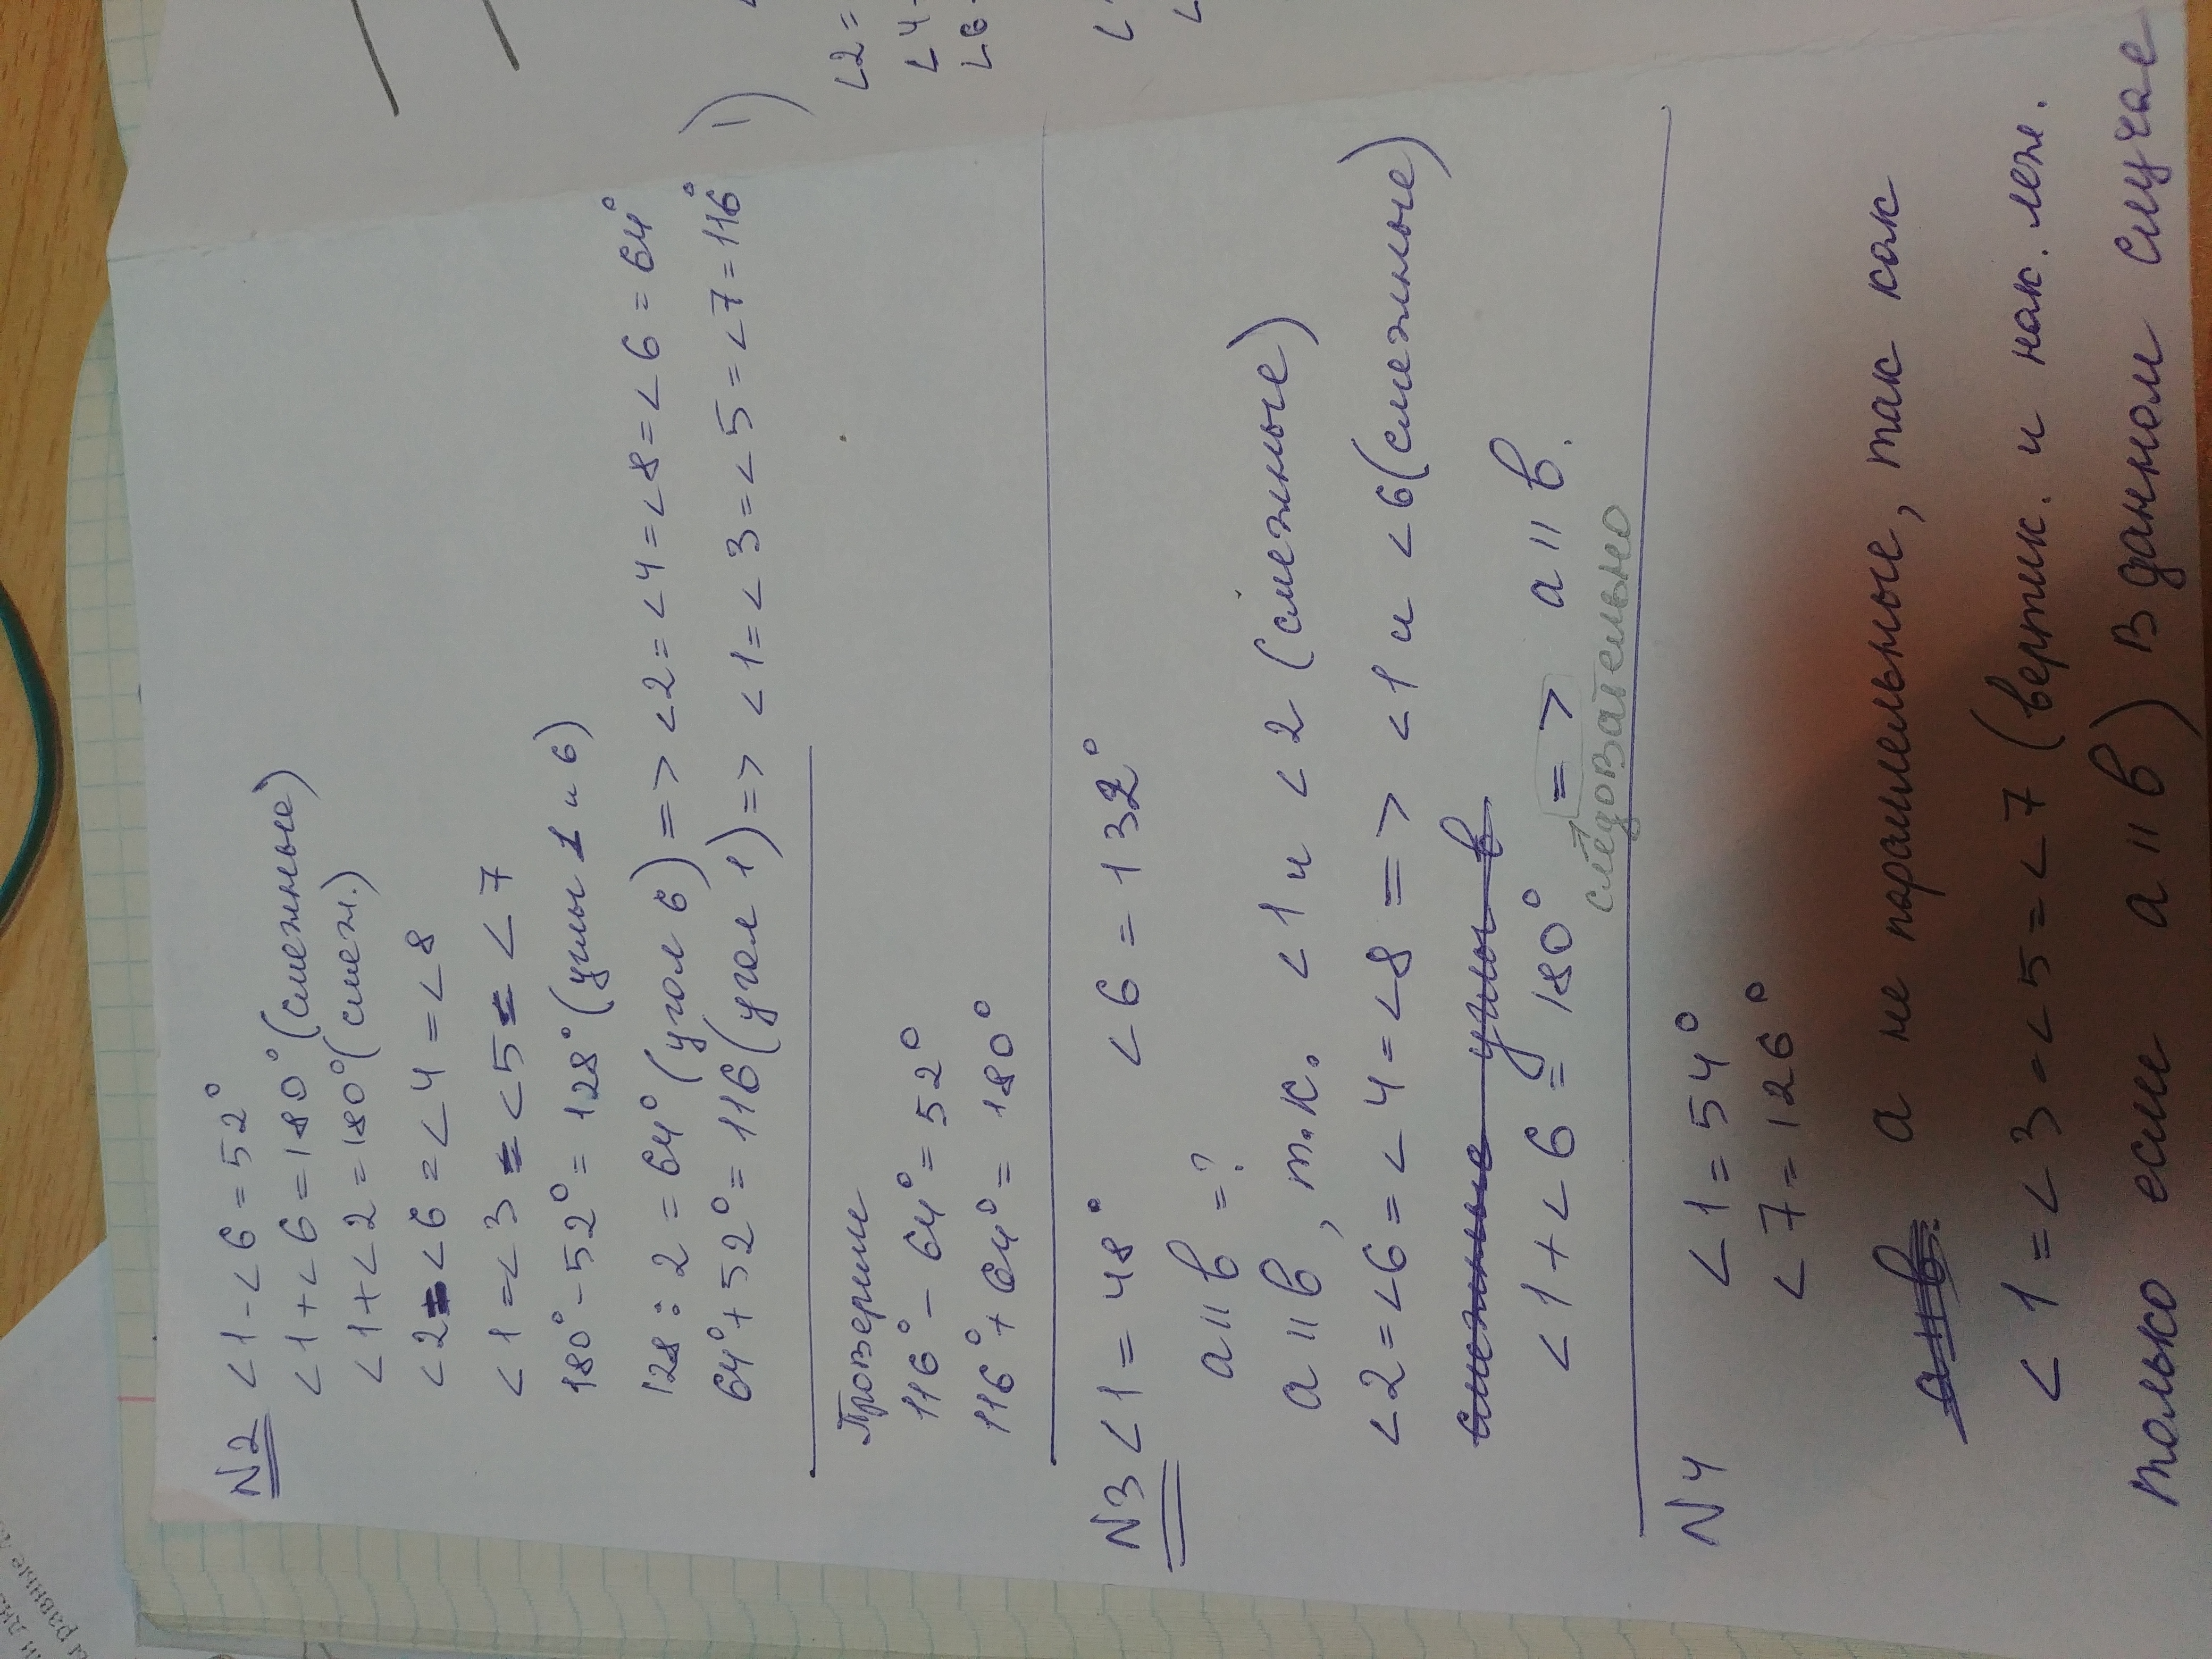 N2 <1-<6=52°
<1+<6=180°(смежные)
<1+<2=180°(смеж.)
<2=<6=<4=<8
<1=<3=<5=<7
180°-52°=128°(углы 1 и 6)
128:2=64°(угол 6)=> <2=<4=<8=<6=64°
64°+52°=116(угел 1)=> <1=<3=<5=<7=116°
Проверим
116°-64°=52°
116°+64°=180°
N3 <1=48° <6=132°
a॥b=?
a॥b, т.к. <1 и <2 (смежные)
<2=<6=<4=<8=> <1 и <6(смежные)
смежные углы в
<1+<6=180° => a॥b.
следовательно
N4 <1=54°
<7=126°
a॥b. а не параллельные, так как
<1=<3=<5=<7 (вертик. и нак. леж.
только если a॥b) в данном случае
<2=
<4
<6